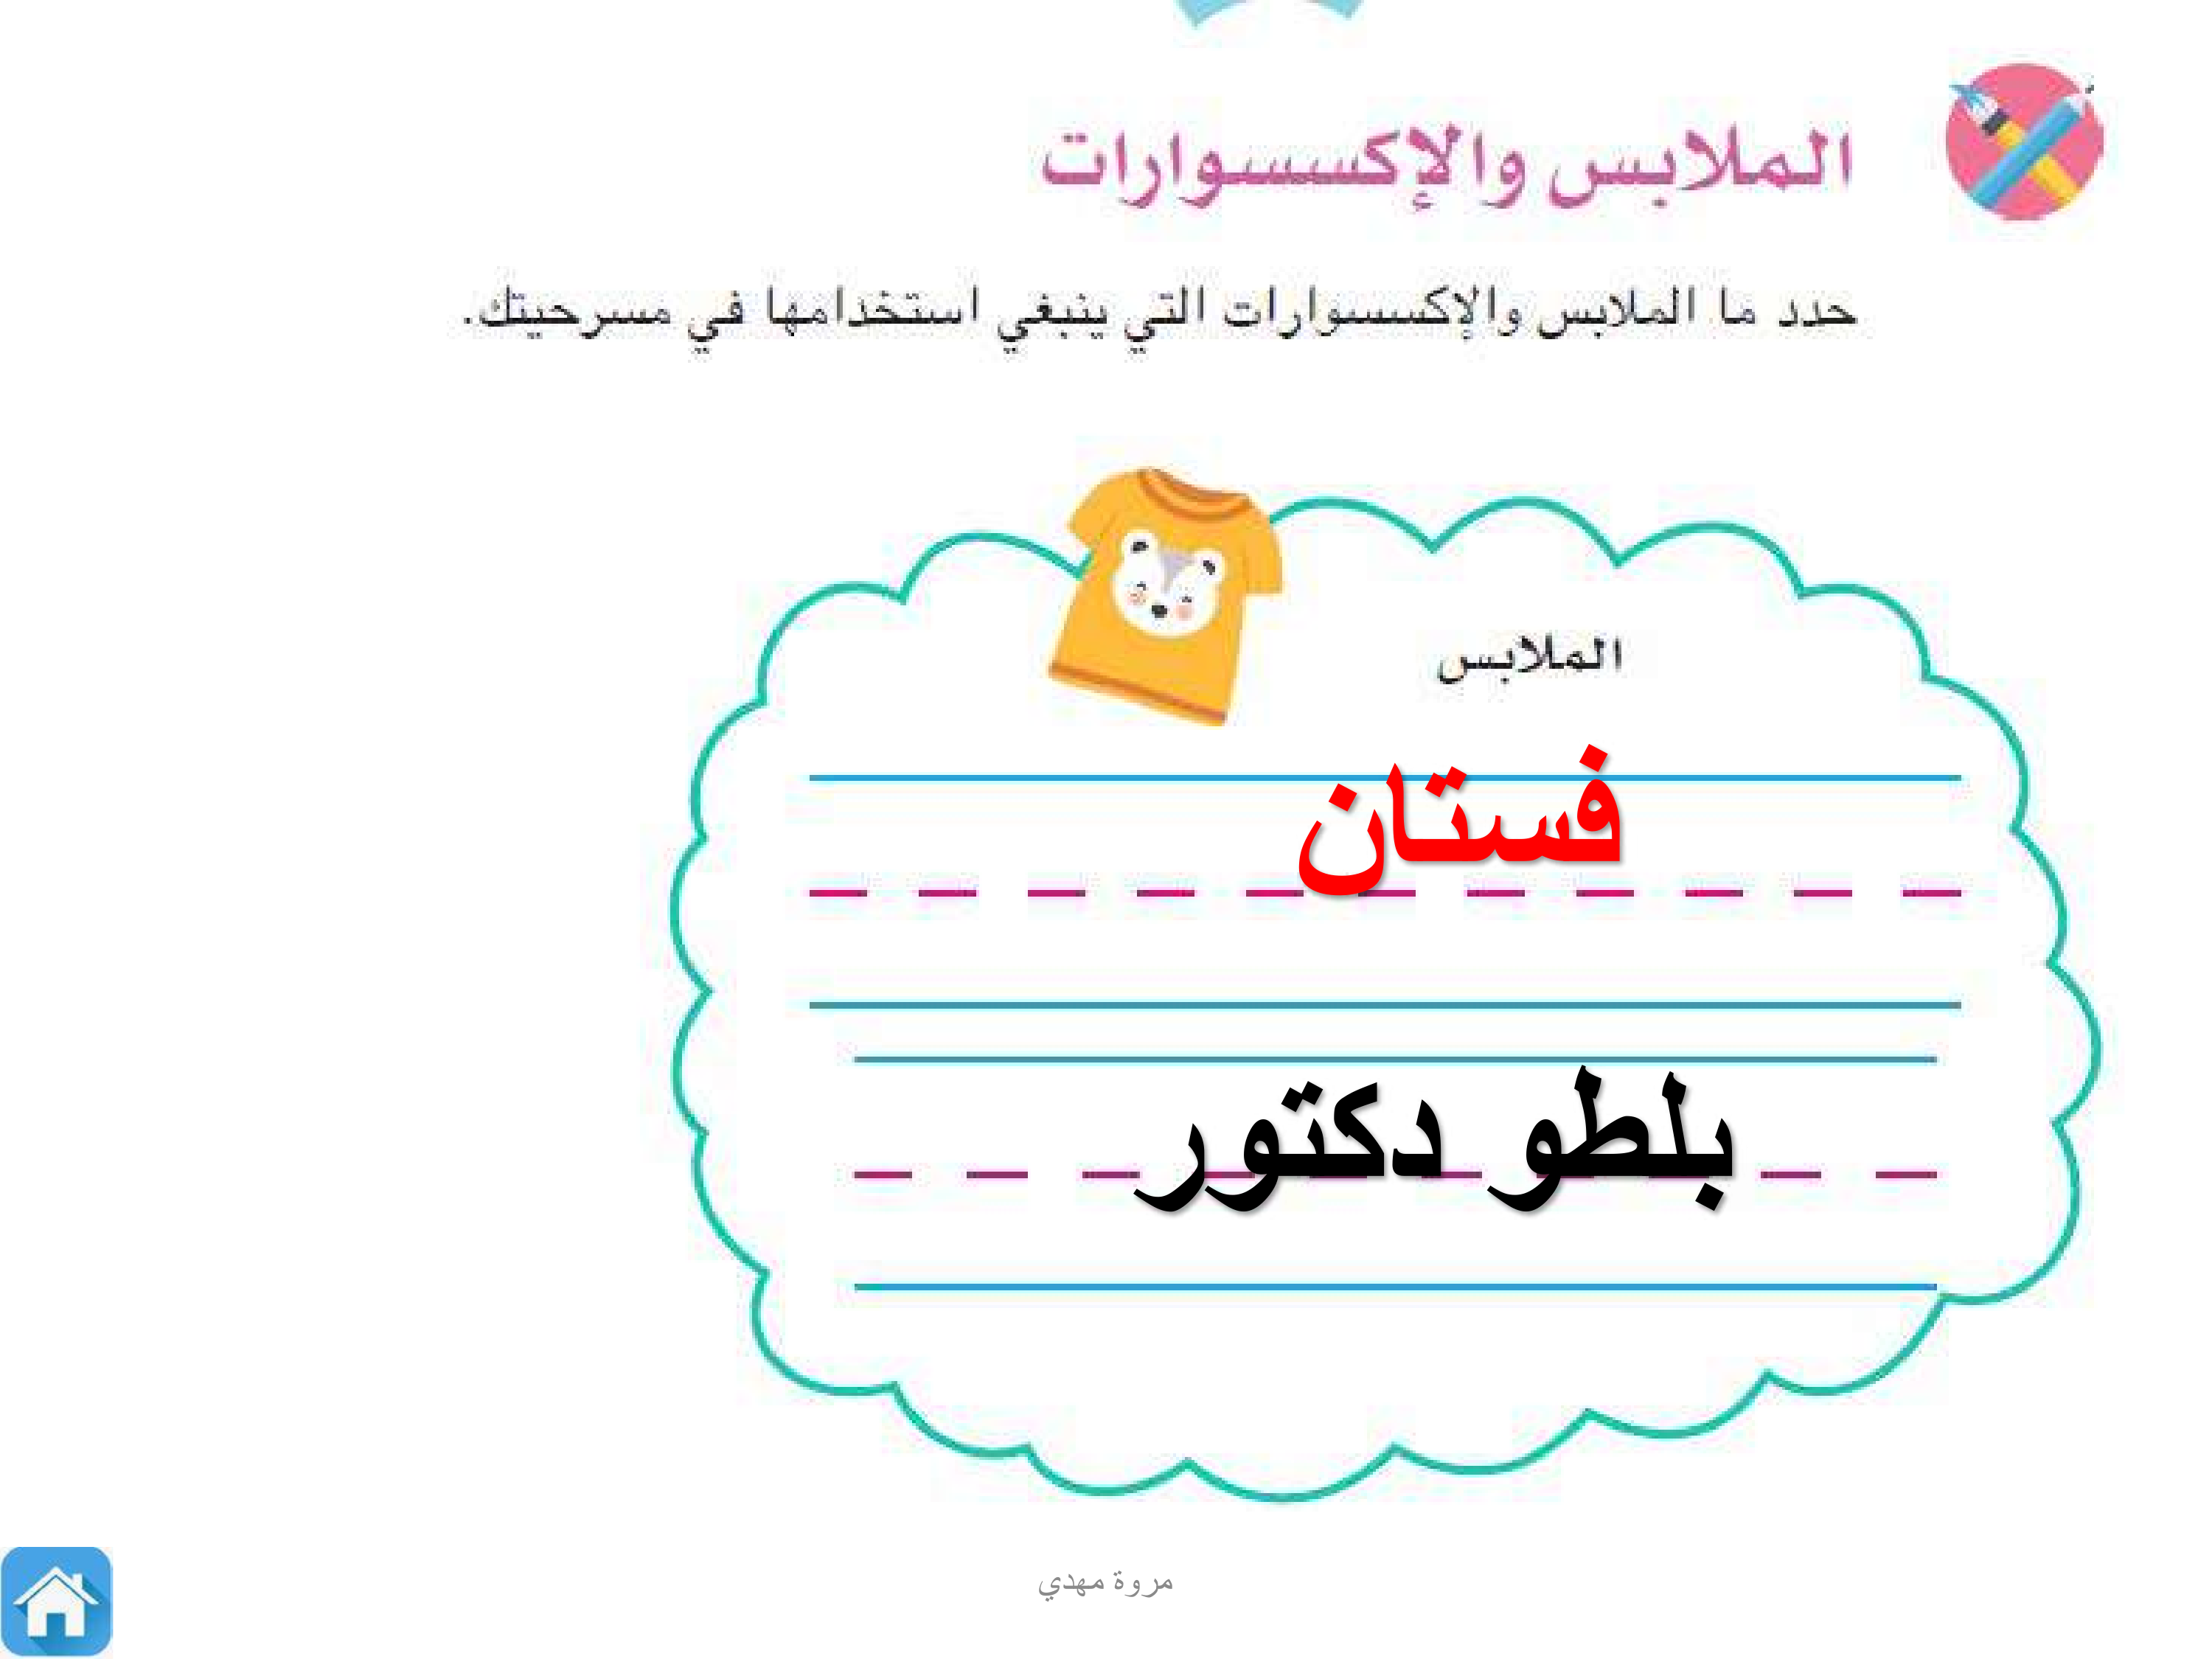 الملابس والإكسسوارات
حدد ما الملابس والإكسسوارات التي ينبغي استخدامها في مسرحيتك.
الملابس
فستان
بلطو دكتور
مروة مهدي